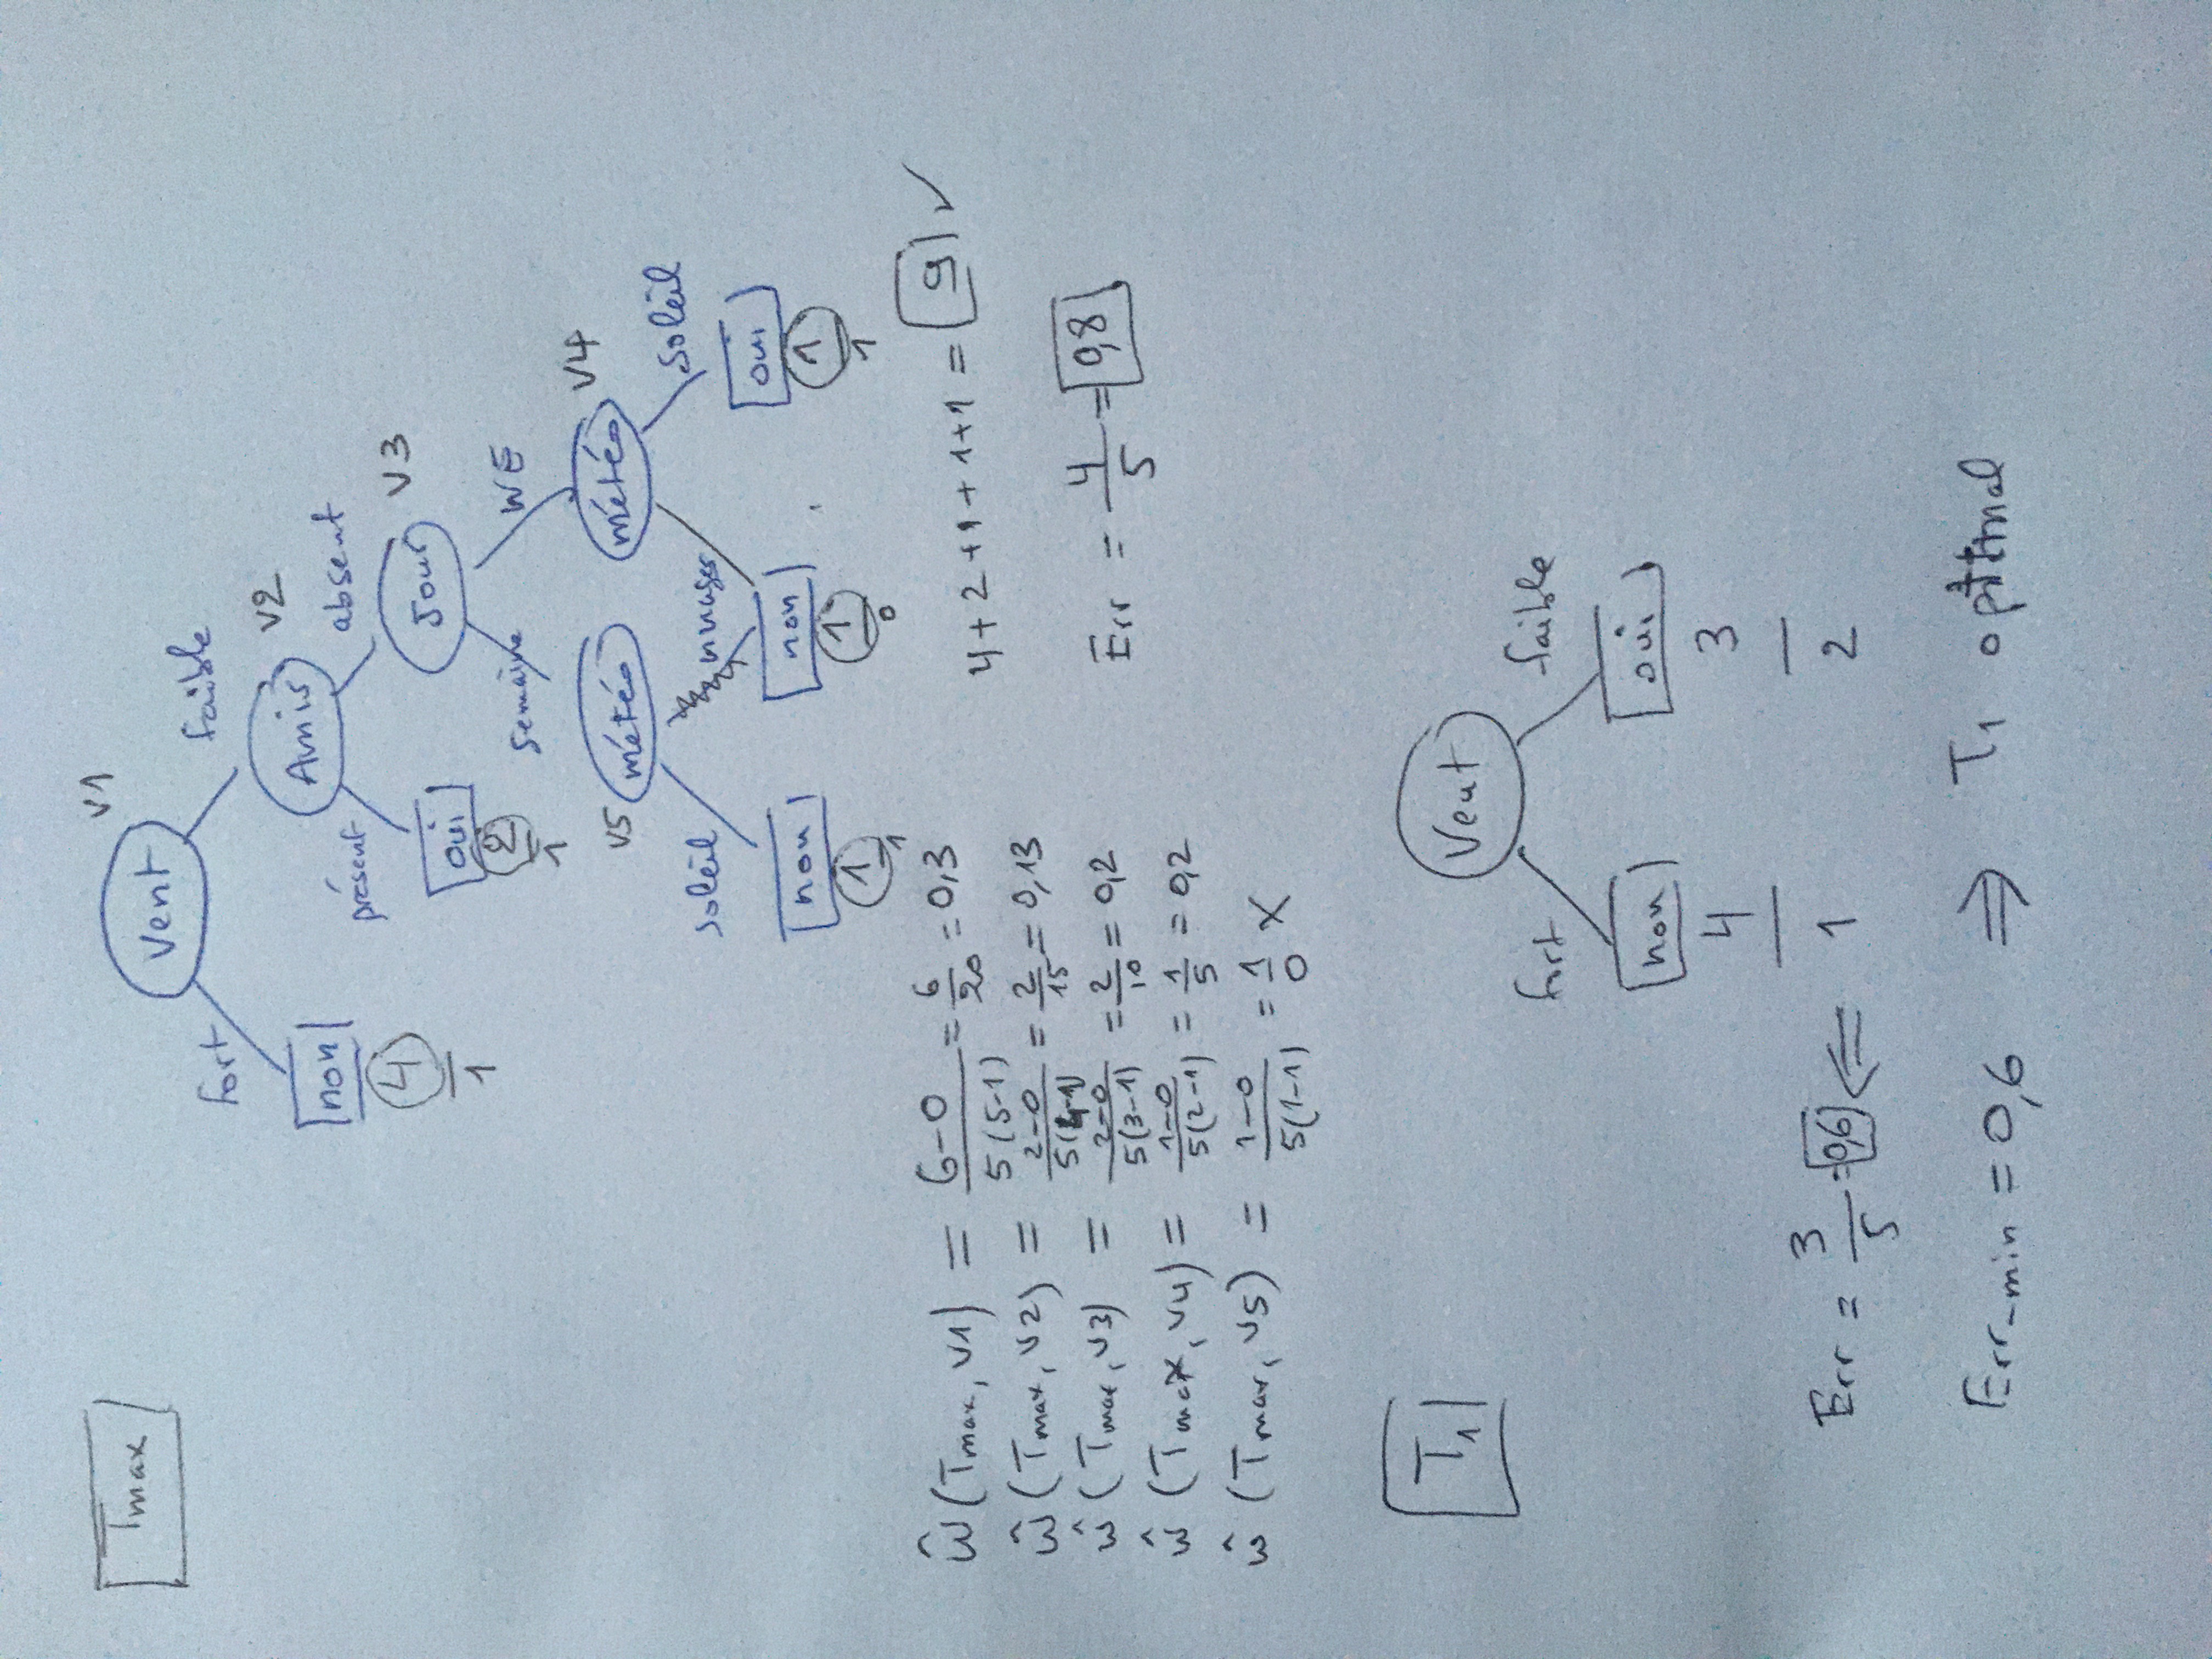 Tmax
V1
Vent
fort
faible
non
4
1
Amis
V2
présent
absent
oui
2
1
Jour
V3
semaine
WE
V5
météo
météo
V4
soleil
nuages
soleil
non
1
1
non
1
0
oui
1
1
ŵ(Tmax, V1) = 6-0 / 5(5-1) = 6/20 = 0,3
4+2+1+1+1 = 9 ✓
ŵ(Tmax, V2) = 2-0 / 5(4-1) = 2/15 = 0,13
Err = 4/5 = 0,8
ŵ(Tmax, V3) = 2-0 / 5(3-1) = 2/10 = 0,2
ŵ(Tmax, V4) = 1-0 / 5(2-1) = 1/5 = 0,2
ŵ(Tmax, V5) = 1-0 / 5(1-1) = 1/0 X
T1
Vent
fort
faible
non
oui
4
3
1
2
Err = 3/5 = 0,6 ⇐
Err_min = 0,6 ⇒ T1 optimal